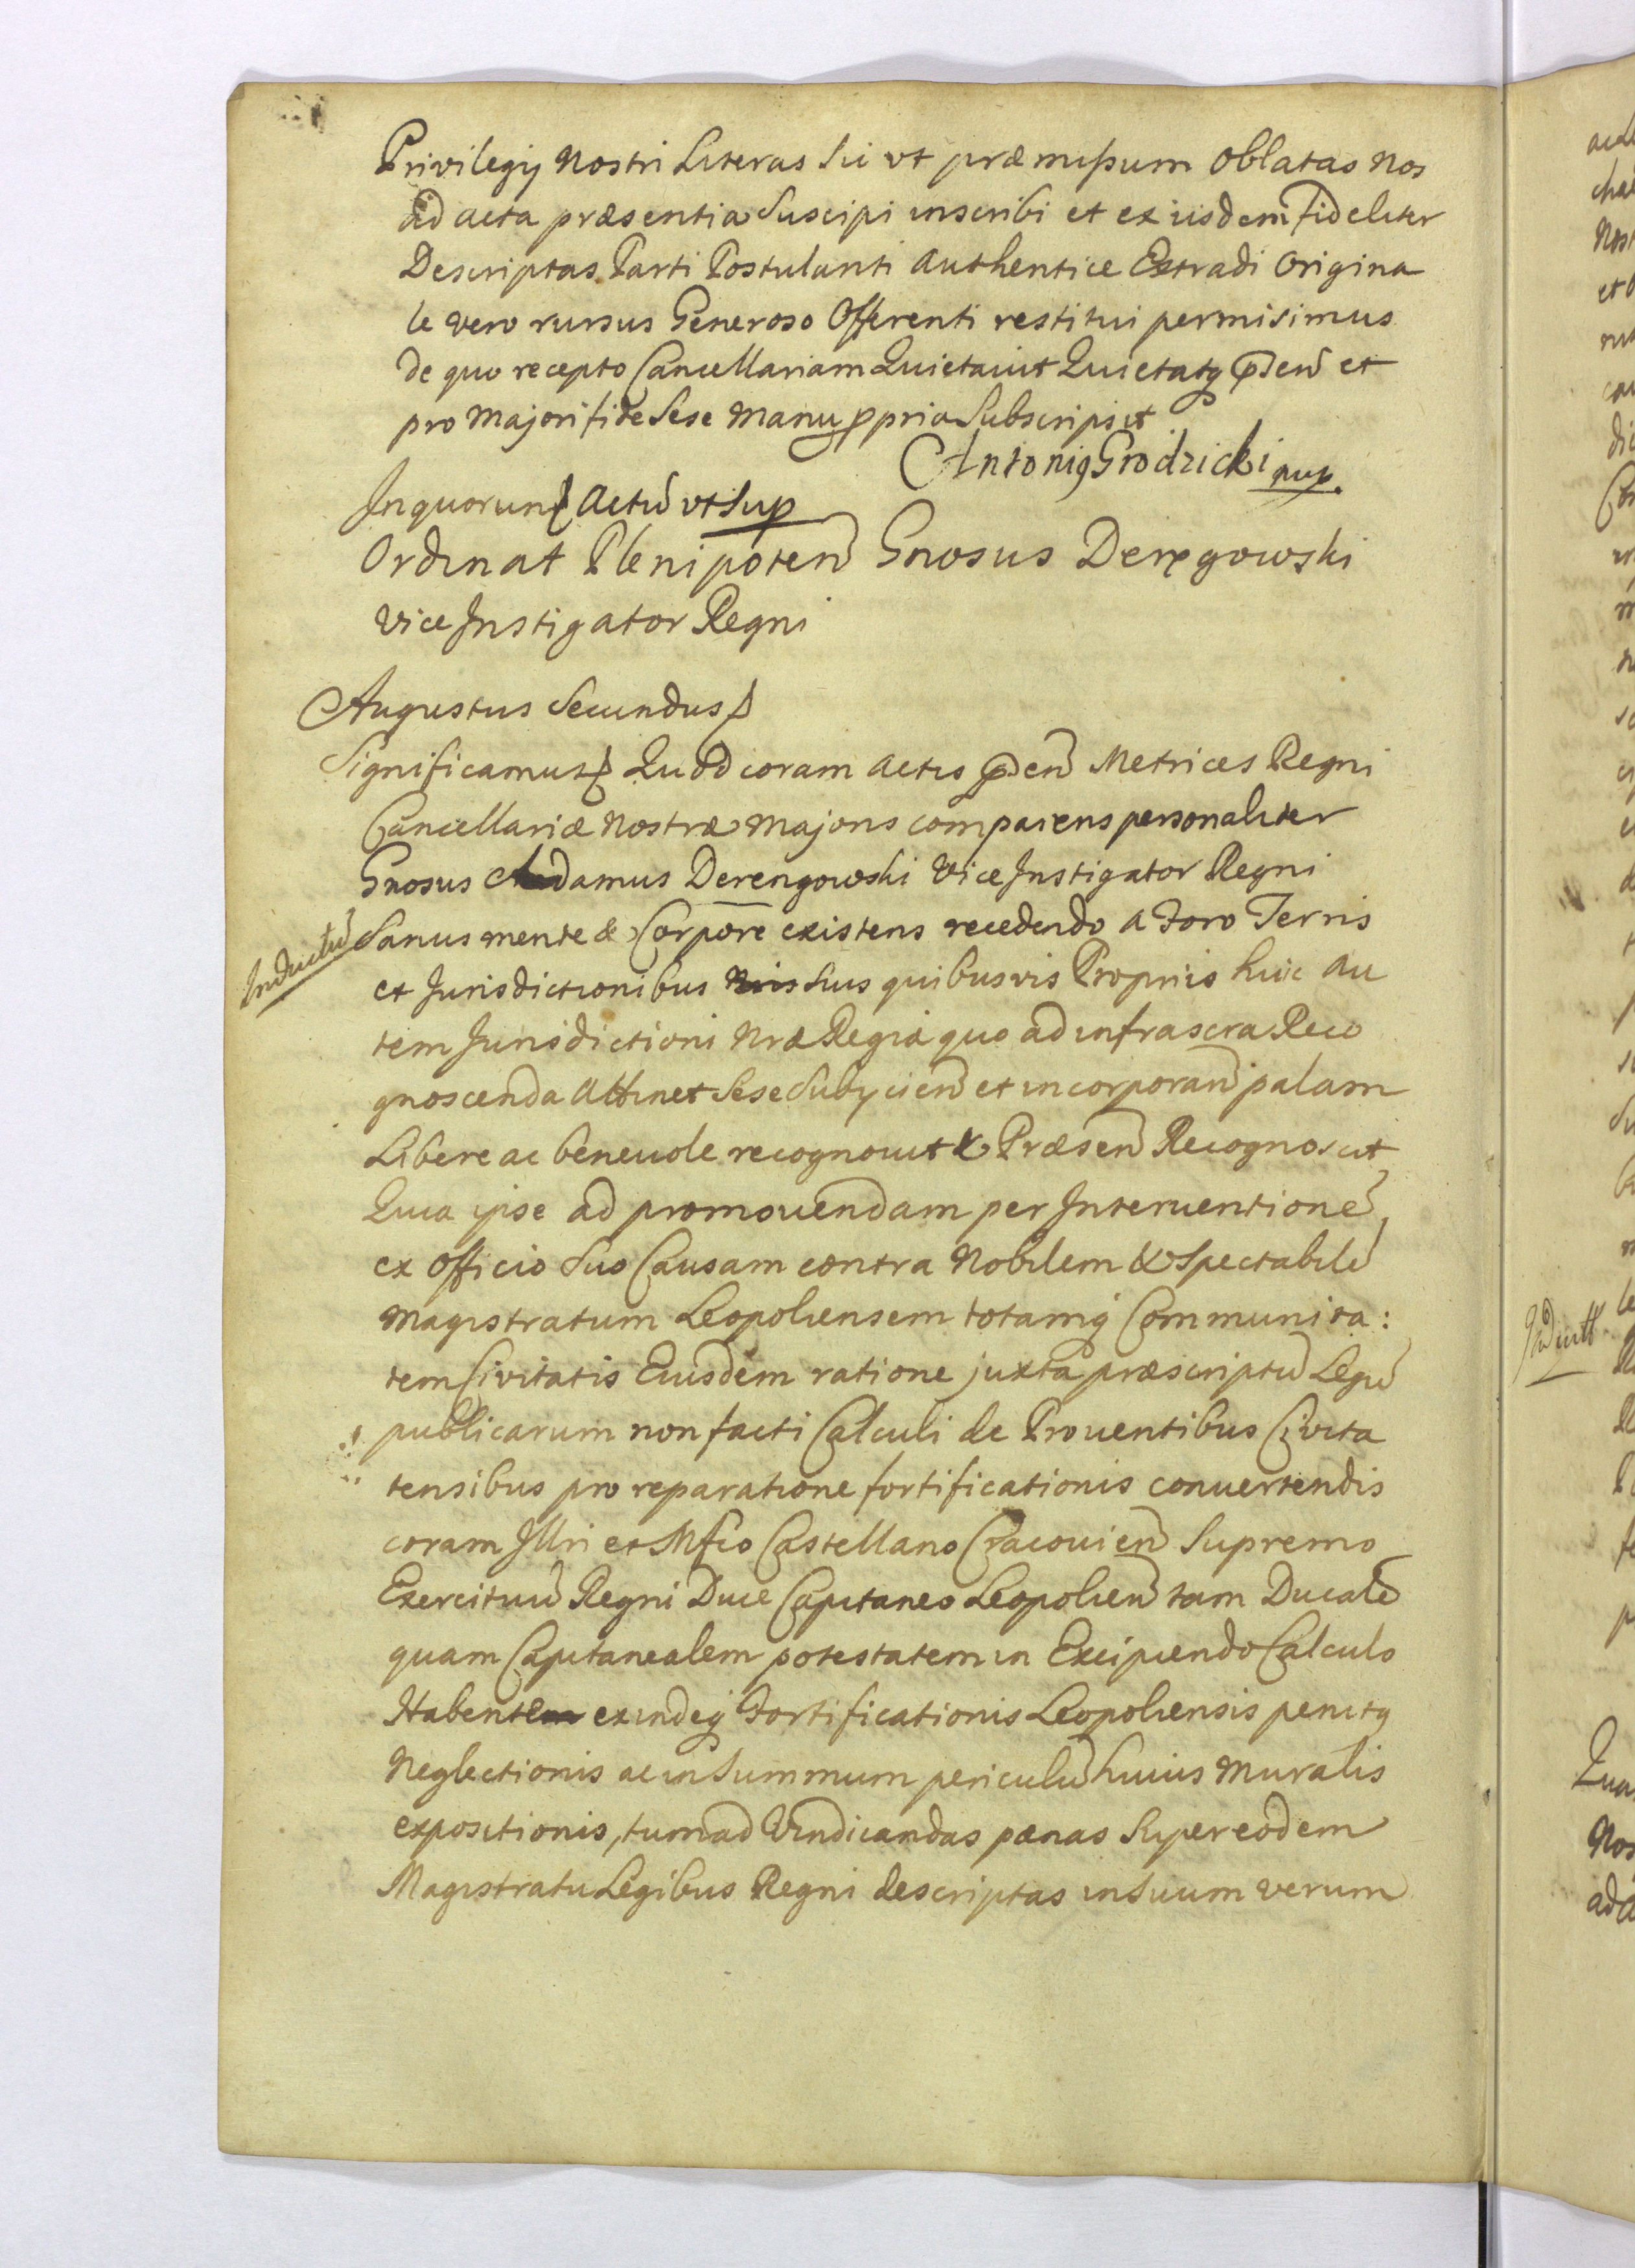 Privilegij Nostri Literas sic ut præmissum Oblatas Nos
ad acta præsentia Suscipi inscribi et ex iisdem fideliter
Descriptas Parti Postulanti Authentice Extradi Origina
le vero rursus Generoso Offerenti restitui permisimus
de quo recepto Cancellariam Quietavit Quietatq pñđen̄ et
pro Majori fide Sese Manu ppria Subscripsit
Antonig Grodzicki mp.
In quorum Actū vt Sup
Ordinat Plenipoten̄ Gnosus Deręgowski
Vice Instigator Regni
Augustus Secundus
Significamus Quod coram Actis pñden̄ Metrices Regni
Cancellariæ Nostræ Majoris comparens personaliter
Gnosus Adamus Derengowski Vice Instigator Regni
Inductū
Sanus mente & Corpore existens recedendo a Foro Terris
et Jurisdictionibus suis quibusvis Propriis huic au
tem Jurisdictioni Nræ Regiæ quo ad infrascra Reco
gnoscenda Attinet Sese Subijcien̄ et incorporan̄ palam
Libere ac benevole recognovit & Præsen̄ Recognoscit
Quia ipse ad promovendam per Interventionē
ex Officio suo Causam contra Nobilem & Spectabilē
Magistratum Leopoliensem totamq Communita:
tem Civitatis Eiusdem ratione juxta præscriptū Legū
publicarum non facti Calculi de Proventibus Civita
tensibus pro reparatione fortificationis convertendis
coram Illri et Mfico Castellano Cracovien̄ Supremo
Exercituū Regni Duce Capitaneo Leopolien̄ tam Ducalē
quam Capitanealem potestatem in Excipiendo Calculo
Habente exindeq Fortificationis Leopoliensis penitq
Neglectionis ac in Summum periculū huius Muralis
expositionis, tum ad Vindicandas pænas Super eodem
Magistratu Legibus Regni descriptas in Suum verum
Inductt